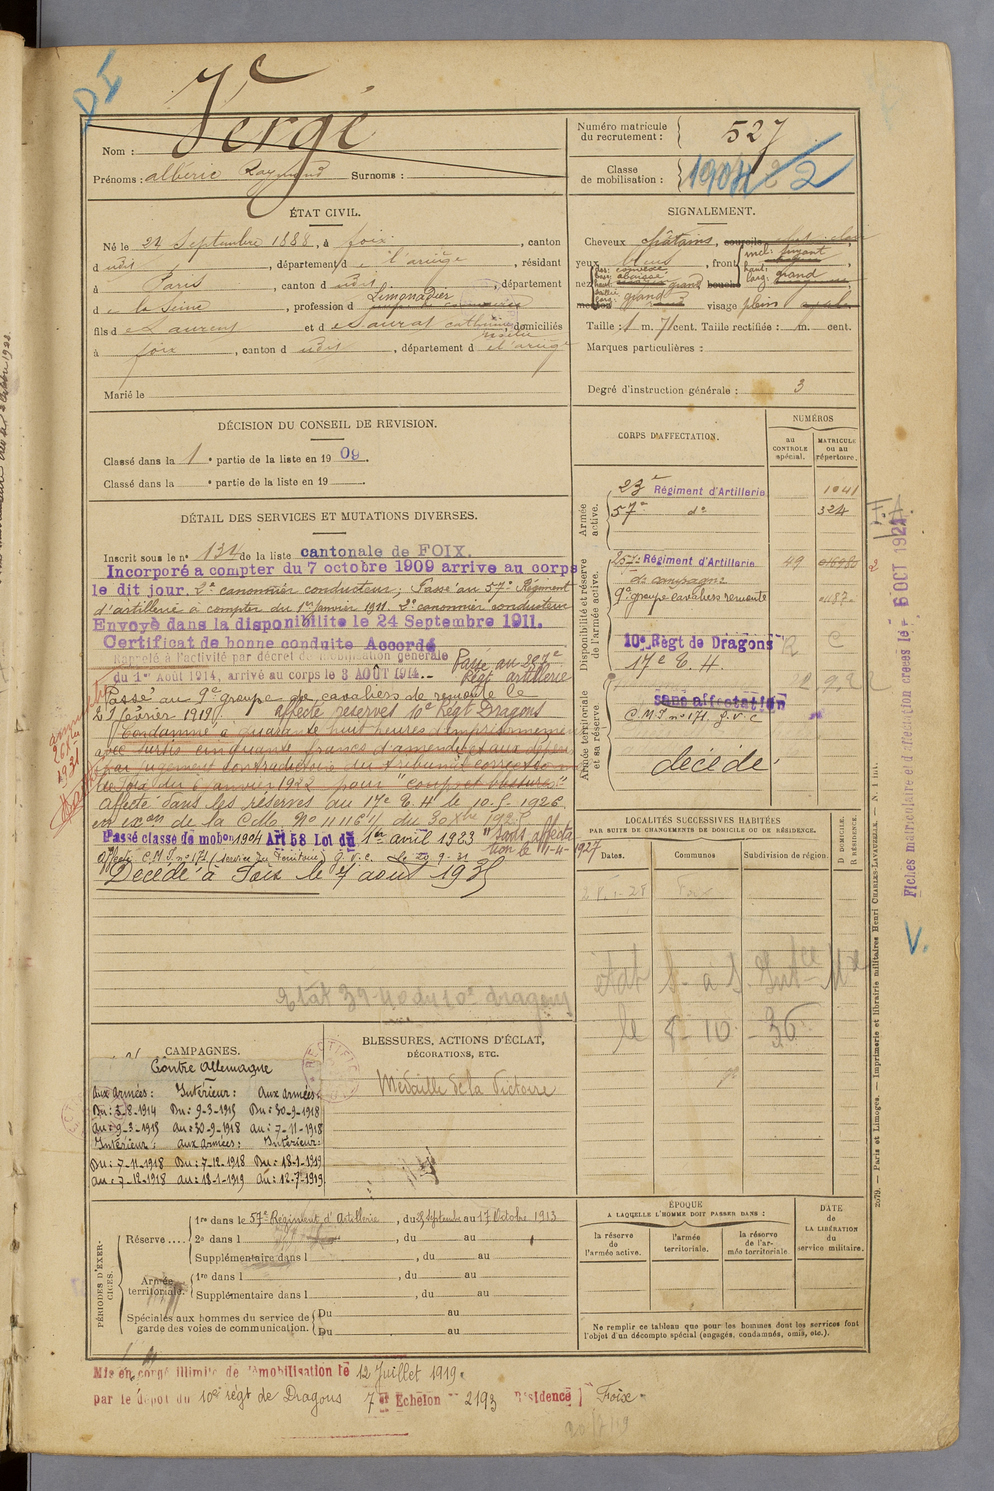 Vergé
Nom :
Prénoms : albéric Raymond Surnoms :
Numéro matricule du recrutement : 527
Classe de mobilisation : 1904
ÉTAT CIVIL.
Né le 24 Septembre 1888, à foix, canton
d udit, département de l'ariège, résidant
à Paris, canton d udit, département
de la Seine, profession de Limonadier
fils de Laurent et de Saurat catherine, domiciliés
à foix, canton d udit, département de l'ariège
Marié le
SIGNALEMENT.
Cheveux châtains,
yeux bleus, front
nez
visage plein
Taille : 1 m. 71 cent. Taille rectifiée : m. cent.
Marques particulières :
Degré d'instruction générale : 3
DÉCISION DU CONSEIL DE REVISION.
Classé dans la 1e partie de la liste en 1909.
Classé dans la e partie de la liste en 19
DÉTAIL DES SERVICES ET MUTATIONS DIVERSES.
Inscrit sous le no 134 de la liste cantonale de FOIX.
Incorporé a compter du 7 octobre 1909 arrive au corps
le dit jour. 2e canonnier conducteur; Passé au 57e Régiment
d'artillerie à compter du 1er janvier 1911. 2e canonnier conducteur
Envoyé dans la disponibilite le 24 Septembre 1911.
Certificat de bonne conduite Accordé
Rappelé à l'activité par décret de mobilisation générale
du 1er Août 1914, arrivé au corps le 3 AOÛT 1914.
Passé au 257e Régt artillerie
Passé au 9e groupe de cavaliers de remonte le
23 février 1919, affecté réserves 10e Régt Dragons
Condamné à quarante huit heures d'emprisonnement
avec sursis cinquante francs d'amende et aux dépens
par jugement contradictoire du tribunal correctionnel
de Foix du 6 janvier 1922 pour "coups et blessures"
Affecté dans les réserves au 17e E. H le 10-5-1926
en exon de la C.M. No 11116 1/1 du 30 Xbre 1925
Passé classe de mobon 1904 Art 58 Loi du 1er avril 1923 "Sans affectation le 11-4-1927
Affecté C.M.I no 171 (service du Territoire) G.V.C. Le 20-9-31
Décédé à Foix le 7 août 1935
Etat 39-40 du 10e dragons
CORPS D'AFFECTATION.
NUMÉROS
au CONTROLE spécial.
MATRICULE ou au répertoire.
Armée active.
23e Régiment d'Artillerie 1041
57e do 324
Disponibilité et réserve de l'armée active.
257e Régiment d'Artillerie 49
de campagne
9e groupe cavaliers remonte
10e Regt de Dragons R C
17e E. H.
Armée territoriale et sa réserve
sans affectation
C.M.I no 171. G.V.C
décédé
LOCALITÉS SUCCESSIVES HABITÉES
PAR SUITE DE CHANGEMENTS DE DOMICILE OU DE RÉSIDENCE.
Dates. Communes Subdivision de région. D. DOMICILE. R. RÉSIDENCE.
Foix
le 8-10-36
CAMPAGNES.
Contre Allemagne
Aux armées : Intérieur : Aux armées :
Du : 3-8-1914 Du : 9-3-1915 Du : 30-9-1918
au : 9-3-1915 au : 30-9-1918 au : 7-11-1918
Intérieur : aux armées : Intérieur :
Du : 7-11-1918 Du : 7-12-1918 Du : 18-1-1919
au : 7-12-1918 au : 18-1-1919 au : 12-7-1919
BLESSURES, ACTIONS D'ÉCLAT,
DÉCORATIONS, ETC.
Médaille de la Victoire
PÉRIODES D'EXERCICES.
Réserve.... 1re dans le 57e Régiment d'Artillerie, du 25 septembre au 17 Octobre 1913
2e dans l , du au
Supplémentaire dans l , du au
Armée territoriale. 1re dans l , du au
Supplémentaire dans l , du au
Spéciales aux hommes du service de garde des voies de communication. Du au
Du au
ÉPOQUE
A LAQUELLE L'HOMME DOIT PASSER DANS :
la réserve de l'armée active.
l'armée territoriale.
la réserve de l'armée territoriale
DATE de LA LIBÉRATION du service militaire.
Ne remplir ce tableau que pour les hommes dont les services font
l'objet d'un décompte spécial (engagés, condamnés, omis, etc.).
Mis en congé illimité de démobilisation le 12 Juillet 1919.
par le dépot du 10e régt de Dragons 7e Echelon 2193 Résidence Foix
2079. — Paris et Limoges. — Imprimerie et librairie militaires Henri CHARLES-LAVAUZELLE.
Fiches matriculaire et d'affectation créées le 6 OCT 192
V.